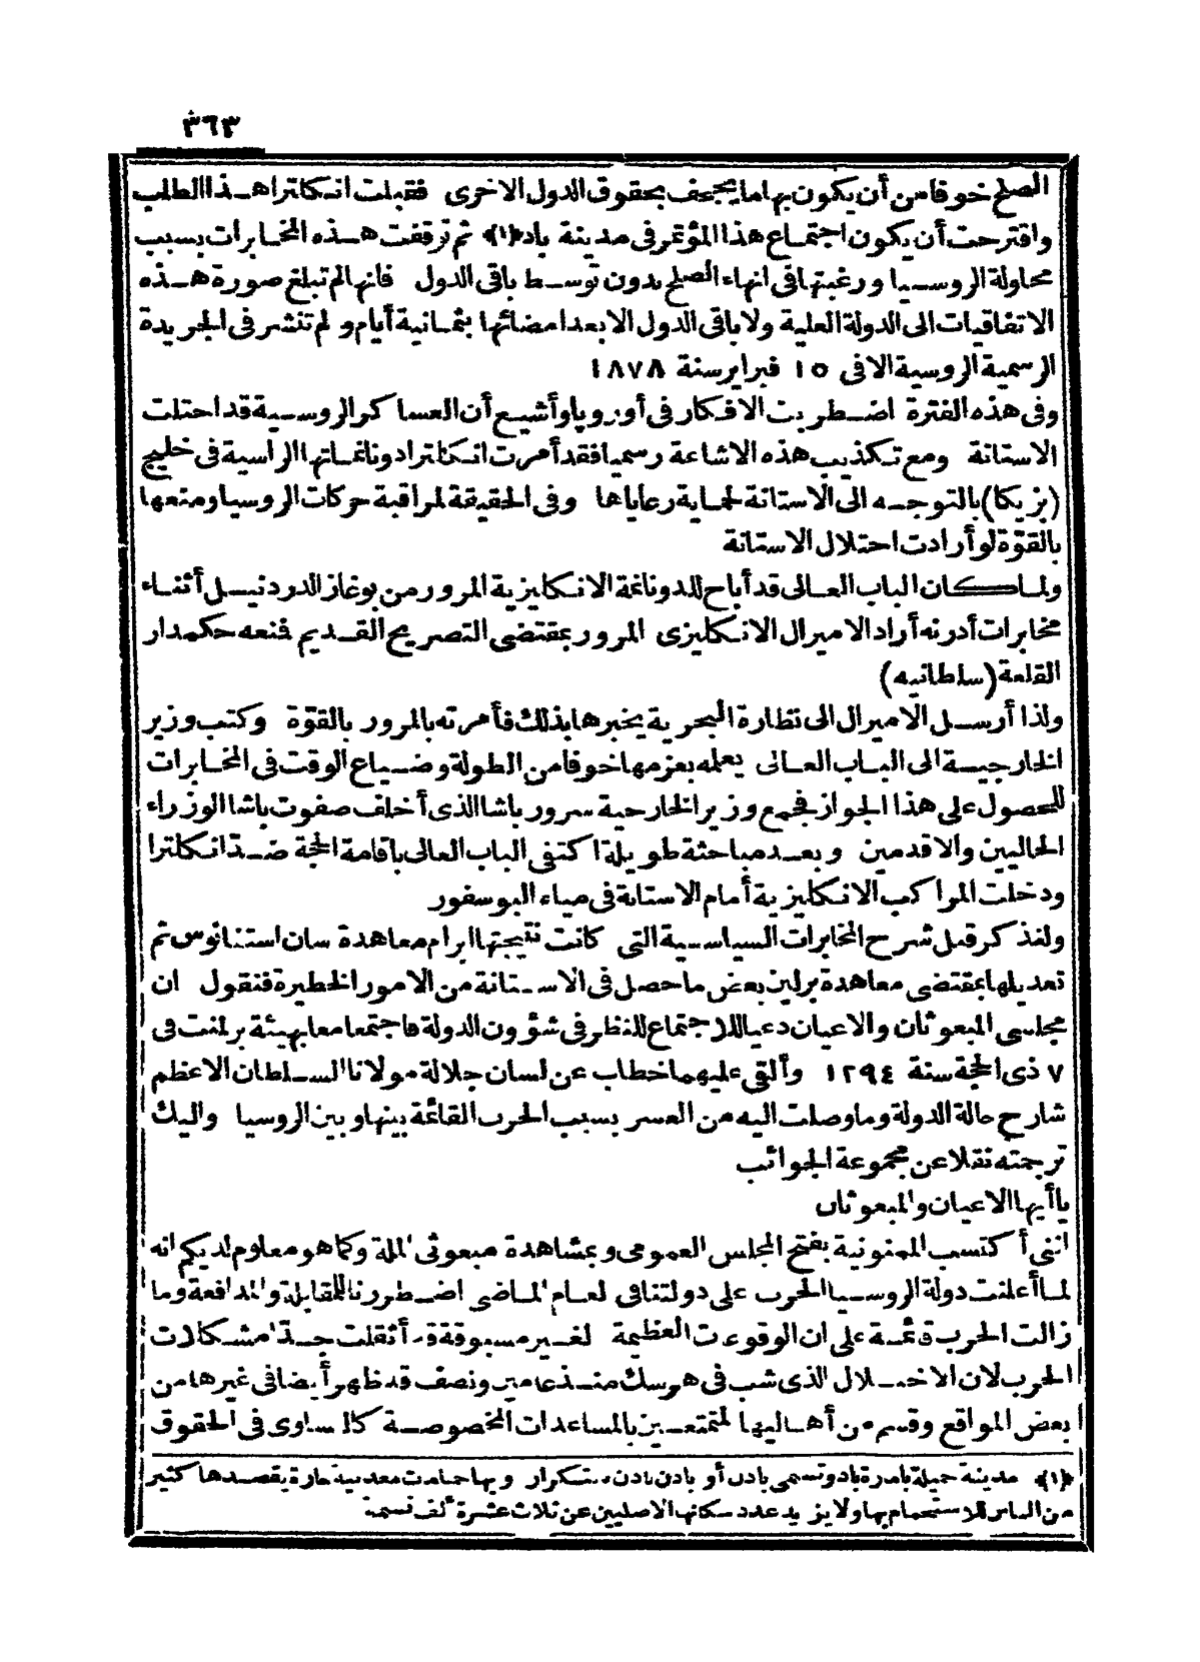 ٣٦٣
الصلح خوفا من أن يكون بها ما يجحف بحقوق الدول الاخرى فقبلت انكلترا هذا الطلب
واقترحت أن يكون اجتماع هذا المؤتمر فى مدينة باد (١) ثم توقفت هذه المخابرات بسبب
محاولة الروسيا ورغبتها فى انهاء الصلح بدون توسط باقى الدول فانها لم تبلغ صورة هذه
الاتفاقيات الى الدولة العلية ولا باقى الدول الا بعد امضائها بثمانية أيام ولم تنشر فى الجريدة
الرسمية الروسية الا فى ١٥ فبراير سنة ١٨٧٨
وفى هذه الفترة اضطربت الافكار فى أوروپا وأشيع أن العساكر الروسية قد احتلت
الاستانة ومع تكذيب هذه الاشاعة رسميا فقد أمرت انكلترا دونانماتها الراسية فى خليج
(بزيكا) بالتوجه الى الاستانة لحماية رعاياها وفى الحقيقة لمراقبة حركات الروسيا ومنعها
بالقوّة لو أرادت احتلال الاستانة
ولما كان الباب العالى قد أباح للدونانمة الانكليزية المرور من بوغاز الدردنيل أثناء
مخابرات أدرنه أراد الاميرال الانكليزى المرور بمقتضى التصريح القديم فمنعه حكمدار
القلعة (سلطانيه)
ولذا أرسل الاميرال الى نظارة البحرية يخبرها بذلك فأمرته بالمرور بالقوّة وكتب وزير
الخارجية الى الباب العالى يعلمه بعزمها خوفا من الطولة وضياع الوقت فى المخابرات
للحصول على هذا الجواز فجمع وزير الخارجية سرور باشا الذى أخلف صفوت باشا الوزراء
الحاليين والاقدمين وبعد مباحثة طويلة اكتفى الباب العالى باقامة الحجة ضدّ انكلترا
ودخلت المراكب الانكليزية أمام الاستانة فى مياه البوسفور
ولنذكر قبل شرح المخابرات السياسية التى كانت نتيجتها ابرام معاهدة سان استفانوس ثم
تعديلها بمقتضى معاهدة برلين بعض ما حصل فى الاستانة من الامور الخطيرة فنقول ان
مجلسى المبعوثان والاعيان دعيا للاجتماع للنظر فى شؤون الدولة فاجتمعا معا بهيئة برلمنت فى
٧ ذى الحجة سنة ١٢٩٤ وألقى عليهما خطاب عن لسان جلالة مولانا السلطان الاعظم
شارح حالة الدولة وما وصلت اليه من العسر بسبب الحرب القائمة بينها وبين الروسيا واليك
ترجمته نقلا عن مجموعة الجوائب
ياأيها الاعيان والمبعوثان
اننى أكتسب الممنونية بفتح المجلس العمومى وبمشاهدة مبعوثى الملة وكما هو معلوم لديكم انه
لما أعلنت دولة الروسيا الحرب على دولتنا فى العام الماضى اضطررنا للمقابلة والمدافعة وما
زالت الحرب قائمة على ان الوقوعات العظيمة الغير مسبوقة قد أثقلت جدّا مشكلات
الحرب لان الاختلال الذى شب فى هرسك منذ عامين ونصف قد ظهر أيضا فى غيرها من
بعض المواقع وقسم من أهاليها المتمتعين بالمساعدات المخصوصة كالتساوى فى الحقوق
(١) مدينة جميلة بامارة باد وتسمى بادن أو بادن بادن للتكرار وبها حمامات معدنية حارة يقصدها كثير
من الناس للاستحمام بها ولا يزيد عدد سكانها الاصليين عن ثلاث عشرة ألف نسمة